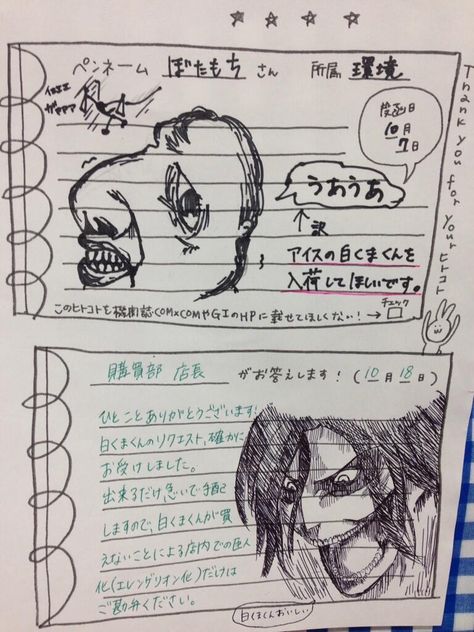 ☆ ☆ ☆ ☆
ペンネーム ぼたもち さん 所属 環境
受付日
10月
7日
うあうあ
↑訳
アイスの白くまくんを
入荷してほしいです。
このヒトコトを機関誌COM×COMやGIのHPに載せてほしくない！→
チェック
□
Thank you for your ヒトコト
購買部 店長 がお答えします！(10月18日)
ひとことありがとうございます!
白くまくんのリクエスト、確かに
お受けしました。
出来るだけ急いで手配
しますので、白くまくんが買
えないことによる店内での巨人
化(エレンゲリオン化)だけは
ご勘弁ください。
白くまくんおいしい